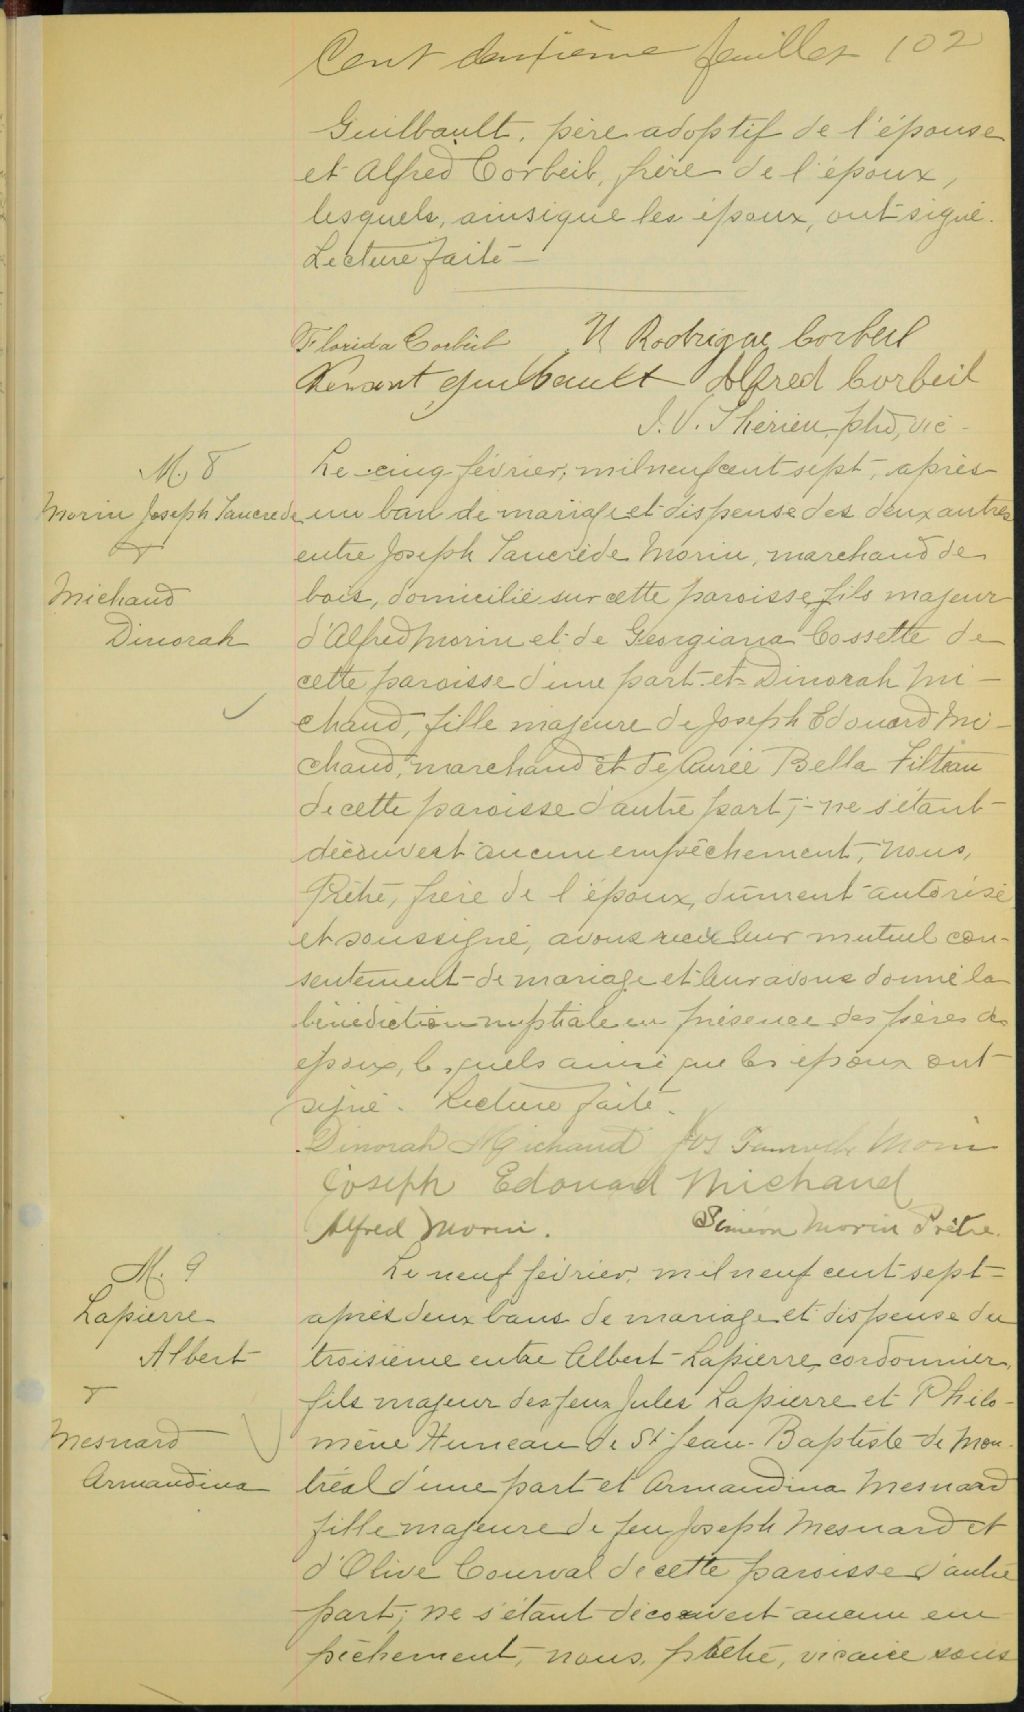 Cent deuxième feuillet 102
Guilbault, père adoptif de l'épouse
et Alfred Corbeil, frère de l'époux,
lesquels, ainsi que les époux, ont signé.
Lecture faite —
Florida Corbeil N Rodrigue Corbeil
Venant Guilbault Alfred Corbeil
J. V. Thérien, ptre, vic -
M. 8
Morin Joseph Tancrède
&
Michaud
Dinorah
Le cinq février, mil neuf cent sept, après
un ban de mariage et dispense des deux autres
entre Joseph Tancrède Morin, marchand de
bois, domicilié sur cette paroisse, fils majeur
d'Alfred Morin et de Georgiana Cossette de
cette paroisse d'une part et Dinorah Mi-
chaud, fille majeure de Joseph Edouard Mi-
chaud, marchand et de Bella Filteau
de cette paroisse d'autre part; - ne s'étant
découvert aucun empêchement, nous,
Prêtre, frère de l'époux, dûment autorisé
et soussigné, avons reçu leur mutuel con-
sentement de mariage et leur avons donné la
bénédiction nuptiale en présence des pères des
époux, lesquels ainsi que les époux ont
signé. Lecture faite.
Dinorah Michaud Jos Morin
Joseph Edouard Michaud
Alfred Morin. Siméon Morin Prêtre.
M. 9
Lapierre
Albert
&
Mesnard
Armandina
Le neuf février, mil neuf cent sept
après deux bans de mariage et dispense du
troisième entre Albert Lapierre, cordonnier,
fils majeur des feux Jules Lapierre et Philo-
mène Huneau de St-Jean-Baptiste de Mon-
tréal d'une part et Armandina Mesnard
fille majeure de feu Joseph Mesnard et
d'Olive Courval de cette paroisse d'autre
part; ne s'étant découvert aucun em-
pêchement, nous, prêtre, vicaire sous